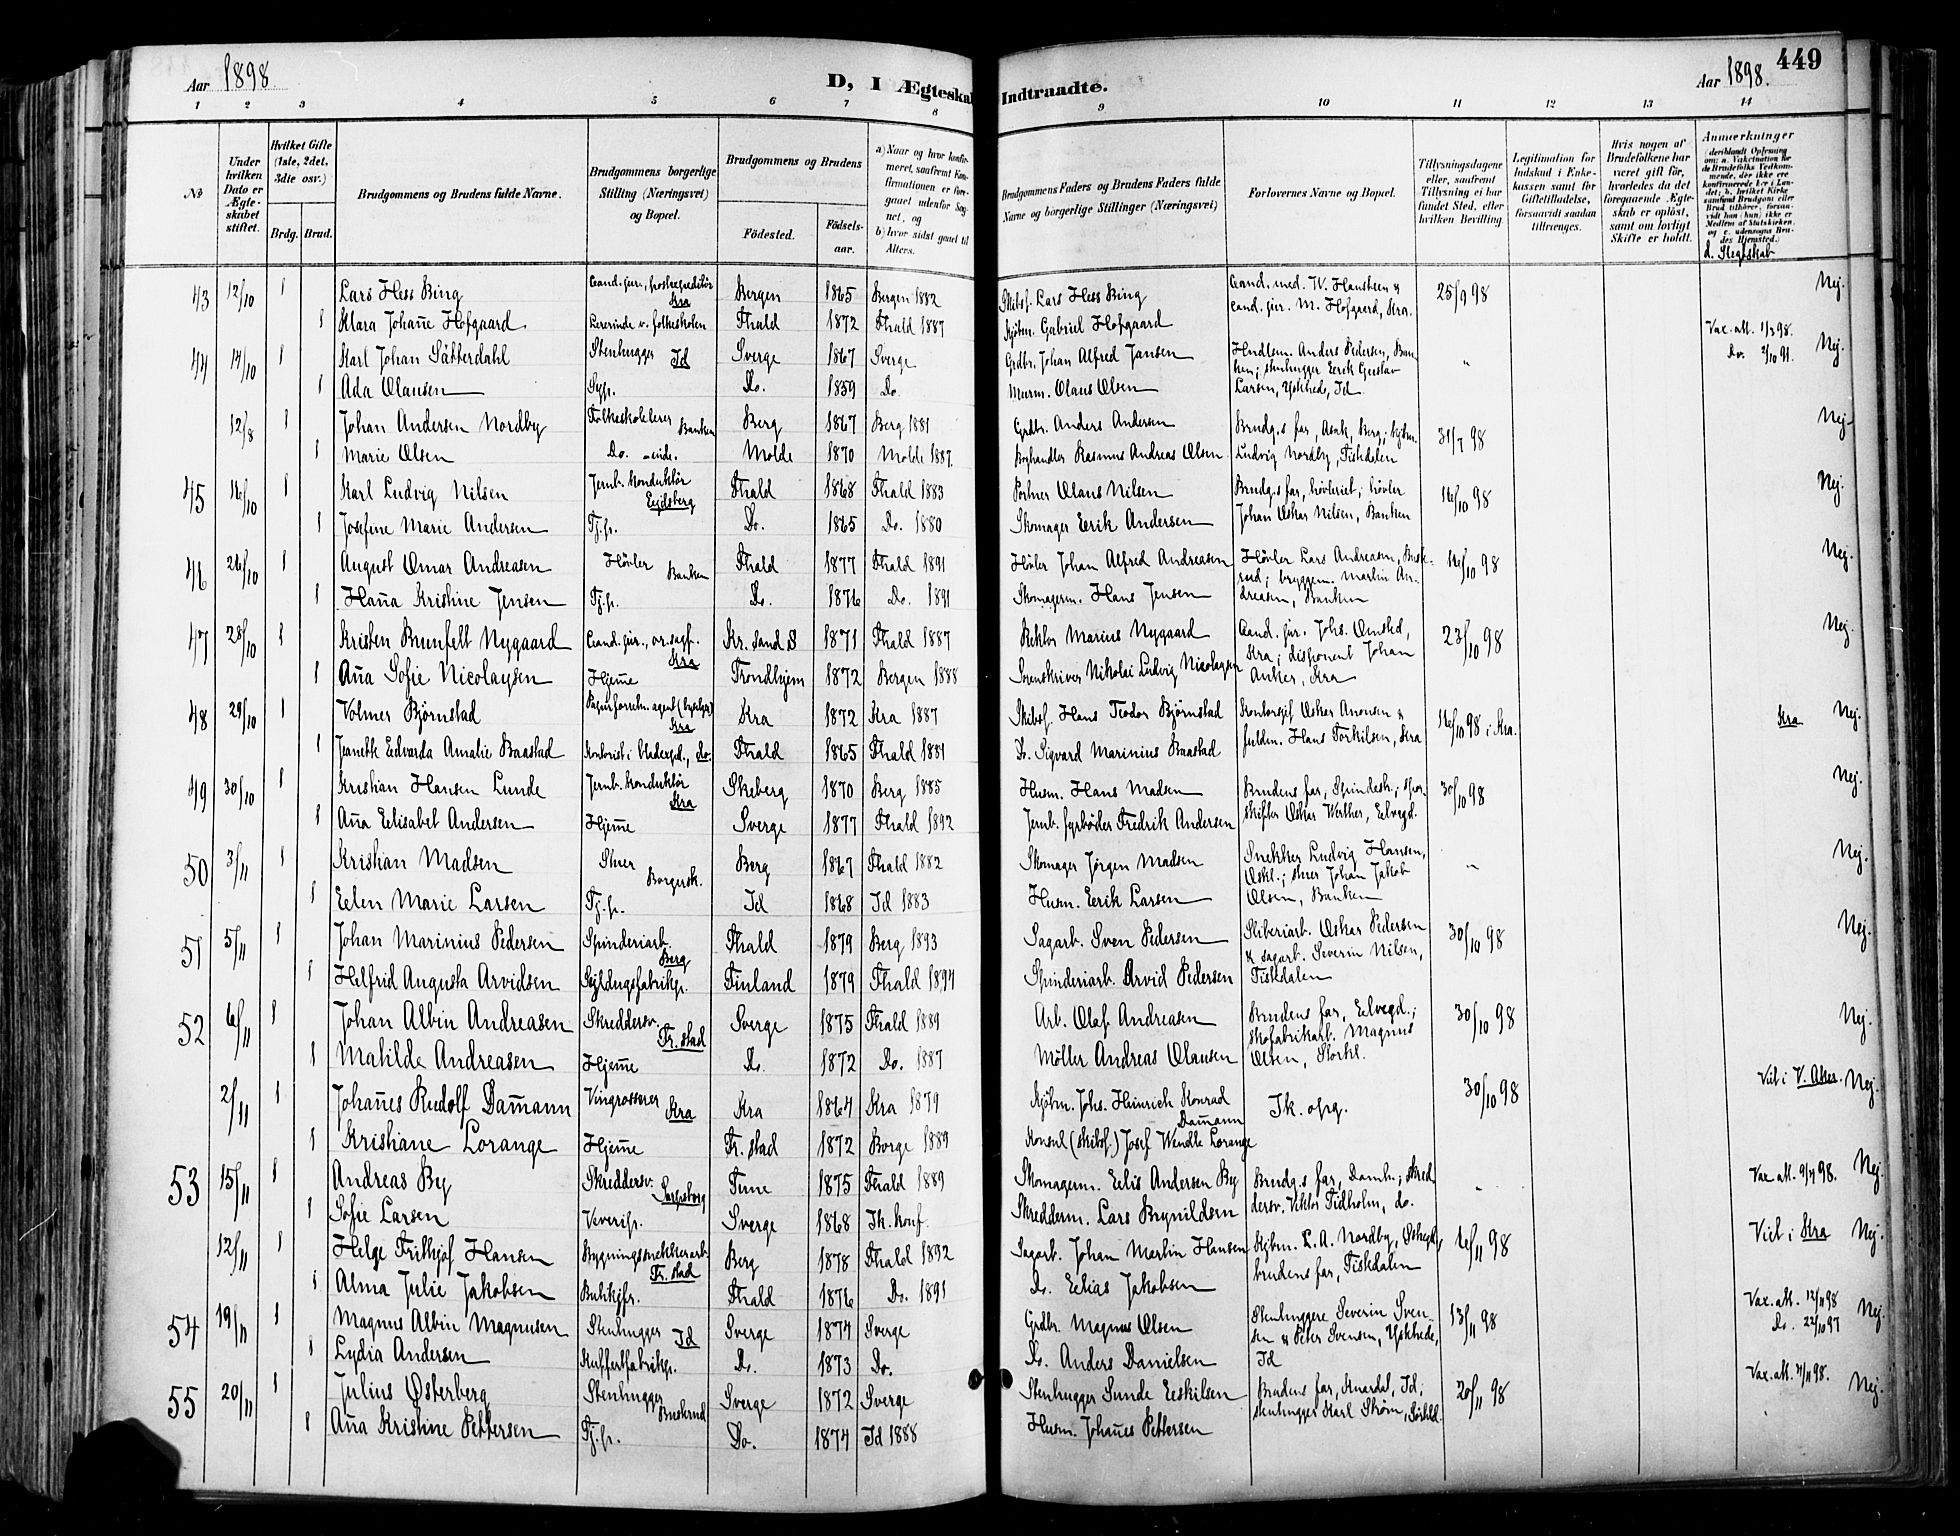 Aar 1898.
D, I Ægteskab Indtraadte.
Aar 1898. 449
1 2 3 4 5 6 7 8 9 10 11 12 13 14
№
Under hvilken Dato er Ægteskabet stiftet.
Hvilket Gifte (1ste, 2det, 3die osv.)
Brdg. Brud.
Brudgommens og Brudens fulde Navne.
Brudgommens borgerlige Stilling (Næringsvei) og Bopæl.
Brudgommens og Brudens
Fødested. Fødselsaar.
a) Naar og hvor konfirmeret, saafremt Konfirmationen er foregaaet udenfor Sognet, og
b) hvor sidst gaaet til Alters.
Brudgommens Faders og Brudens Faders fulde Navne og borgerlige Stillinger (Næringsvei)
Forlovernes Navne og Bopæl.
Tillysningsdagene eller, saafremt Tillysning ei har fundet Sted, efter hvilken Bevilling
Legitimation for Indskud i Enkekassen samt for Giftetilladelse, forsaavidt saadan tiltrænges.
Hvis nogen af Brudefolkene har været gift før, hvorledes da det foregaaende Ægteskab er opløst, samt om lovligt Skifte er holdt.
Anmærkninger
d. Slegtskab
43 12/10 1 Lars Hess Bing Cand. jur., postexpeditør Kra Bergen 1865 Bergen 1882 Skibsf. Lars Hess Bing Cand. med. W. Hansteen & 25/9 98 Nej.
1 Klara Johanne Hofgaard Lererinde v. folkeskolen Fhald 1872 Fhald 1887 Kjøbm. Gabriel Hofgaard cand. jur. M. Hofgaard, Kra.
44 14/10 1 Karl Johan Sätterdahl Stenhugger Id Sverge 1867 Sverge Grdbr. Johan Alfred Jansen Hndlsm. Anders Pedersen, Banken; stenhugger Eerik Gustav " Vax. att. 1/3 98. Nej.
1 Ada Olausen Sypr. Do. 1859 Do. Murm. Olaus Olsen Larsen, Yskhede, Id Do. 2/10 91.
12/8 1 Johan Andersen Nordby Folkeskolelerer Banken Berg 1867 Berg 1881 Grdbr. Anders Andersen Brudg.s far, Asak, Berg; kjbm. 31/7 98 Nej.
1 Marie Olsen Do. -inde. Molde 1870 Molde 1887. Boghandler Rasmus Andreas Olsen Ludvig Nordby, Tistedalen
45 16/10 1 Karl Ludvig Nilsen Jernb. konduktør Eejdsberg Fhald 1868 Fhald 1883 Portner Olaus Nilsen Brudg.s far, høvleriet; høvler 16/10 98 Nej.
1 Josefine Marie Andersen Tj.pr. Do. 1865 Do. 1880 Skomager Eerik Andersen Johan Oskar Nilsen, Banken
46 26/10 1 August Omar Andreasen Høvler Banken Fhald 1877 Fhald 1891 Høvler Johan Alfred Andreasen Høvler Lars Andreasen, Buskrud; bryggem. Martin An- 16/10 98 Nej.
1 Hanna Kristine Jensen Tj.pr. Do. 1876 Do. 1891 Skomagerm. Hans Jensen dreasen, Banken
47 28/10 1 Kristen Brunfelt Nygaard Cand. jur., or. sagf. Kra Kr. sand S 1871 Fhald 1887 Rektor Marius Nygaard Cand. jur. Johs. Omsted, Kra; disponent Johan 23/10 98 Nej.
1 Anna Sofie Nicolaysen Hjemme Trondhjem 1872 Bergen 1888 Sorenskriver Nikolai Ludvig Nicolaysen Anker, Kra
48 29/10 1 Volmer Bjørnstad Papirforretn. agent Kra Kra 1872 Kra 1887 Skibsf. Hans Teodor Bjørnstad Kontorsjef Oskar Anonsen & 16/10 98 i Kra. Kra Nej.
1 Jeanette Edvarda Amalie Baastad Kontorist i Nedregd., do. Fhald 1865 Fhald 1881 Do. Sigvard Marinius Baastad fuldm. Hans Torkilsen, Kra
49 30/10 1 Kristian Hansen Lunde Jernb. konduktør Kra Skeberg 1870 Berg 1885 Husm. Hans Madsen Brudens far, Spindesk.; spor- 30/10 98 Nej.
1 Anna Eelisabet Andersen Hjemme Sverge 1877 Fhald 1892 Jernb. fyrbøder Fredrik Andersen skifter Oskar Werther, Eelvegd.
50 3/11 1 Kristian Madsen Skrer Borgersk. Berg 1867 Fhald 1882 Skomager Jørgen Madsen Snekker Ludvig Hansen, Oskl.; skrer Johan Jakob " Nej.
1 Eelen Marie Larsen Tj.pr. Id 1868 Id 1883 Husm. Eerik Larsen Olsen, Banken
51 5/11 1 Johan Marinius Pedersen Spinderiarb. Berg Fhald 1879 Berg 1893 Sagarb. Sven Pedersen Sliberiarb. Oskar Pedersen & sagarb. Severin Nilsen, 30/10 98 Nej.
1 Helfrid Augusta Arvidsen Sejldugsfabrikpr. Finland 1879 Fhald 1894 Spinderiarb. Arvid Pedersen Tistedalen
52 6/11 1 Johan Albin Andreasen Skreddersv. Fr. stad Sverge 1875 Fhald 1889 Arb. Olaf Andreasen Brudens far, Eelvegd.; skofabrikarb. Magnus 30/10 98 Nej.
1 Matilde Andreasen Hjemme Do. 1872 Do. 1887 Møller Andreas Olausen Olsen, Storkl.
2/11 1 Johannes Rudolf Dammann Vingrosserer Kra Kra 1864 Kra 1879 Kjøbm. Johs. Heinrich Konrad Dammann Ik. opg. 30/10 98 Viet i V. Aker. Nej.
1 Kristiane Lorange Hjemme Fr. stad 1872 Borge 1889 Konsul (skibsf.) Josef Wendle Lorange
53 15/11 1 Andreas By Skreddersv. Sarpsborg Tune 1875 Fhald 1889 Skomagerm. Eelis Andersen By Brudg.s far, Damh.; skred " Vax att. 9/11 98. Nej.
1 Sofie Larsen Veveripr. Sverge 1868 Ik. konf. Skredderm. Lars Brynildsen dersv. Viktor Tidholm, do.
12/11 1 Helge Fritkjof Hansen Bygningssnekkerarb. Fr. stad Berg 1878 Fhald 1892 Sagarb. Johan Martin Hansen Kjbm. L. A. Nordby, 6/11 98 Viet i Kra Nej.
1 Alma Julie Jakobsen Butikjfr. Fhald 1876 Do. 1891 Do. Eelias Jakobsen brudens far, Tistedalen
54 19/11 1 Magnus Albin Magnusen Stenhugger Id Sverge 1874 Sverge Grdbr. Magnus Olsen Stenhuggere Severin Svensen & Peter Svensen, Yskhede, 13/11 98 Vax. att. 12/11 98 Nej.
1 Lydia Andersen Kuffertfabrikpr. Do. 1873 Do. Do. Anders Danielsen Id Do. 22/10 97
55 20/11 1 Julius Østerberg Stenhugger Buskrud Sverge 1872 Sverge Stenhugger Sunde Eeskilsen Brudens far, Knardal, Id; 20/11 98 Vax. att. 4/11 98. Nej.
1 Anna Kristine Pettersen Tj.pr. Do. 1874 Id 1888 Husm. Johannes Pettersen stenhugger Karl Strøm,